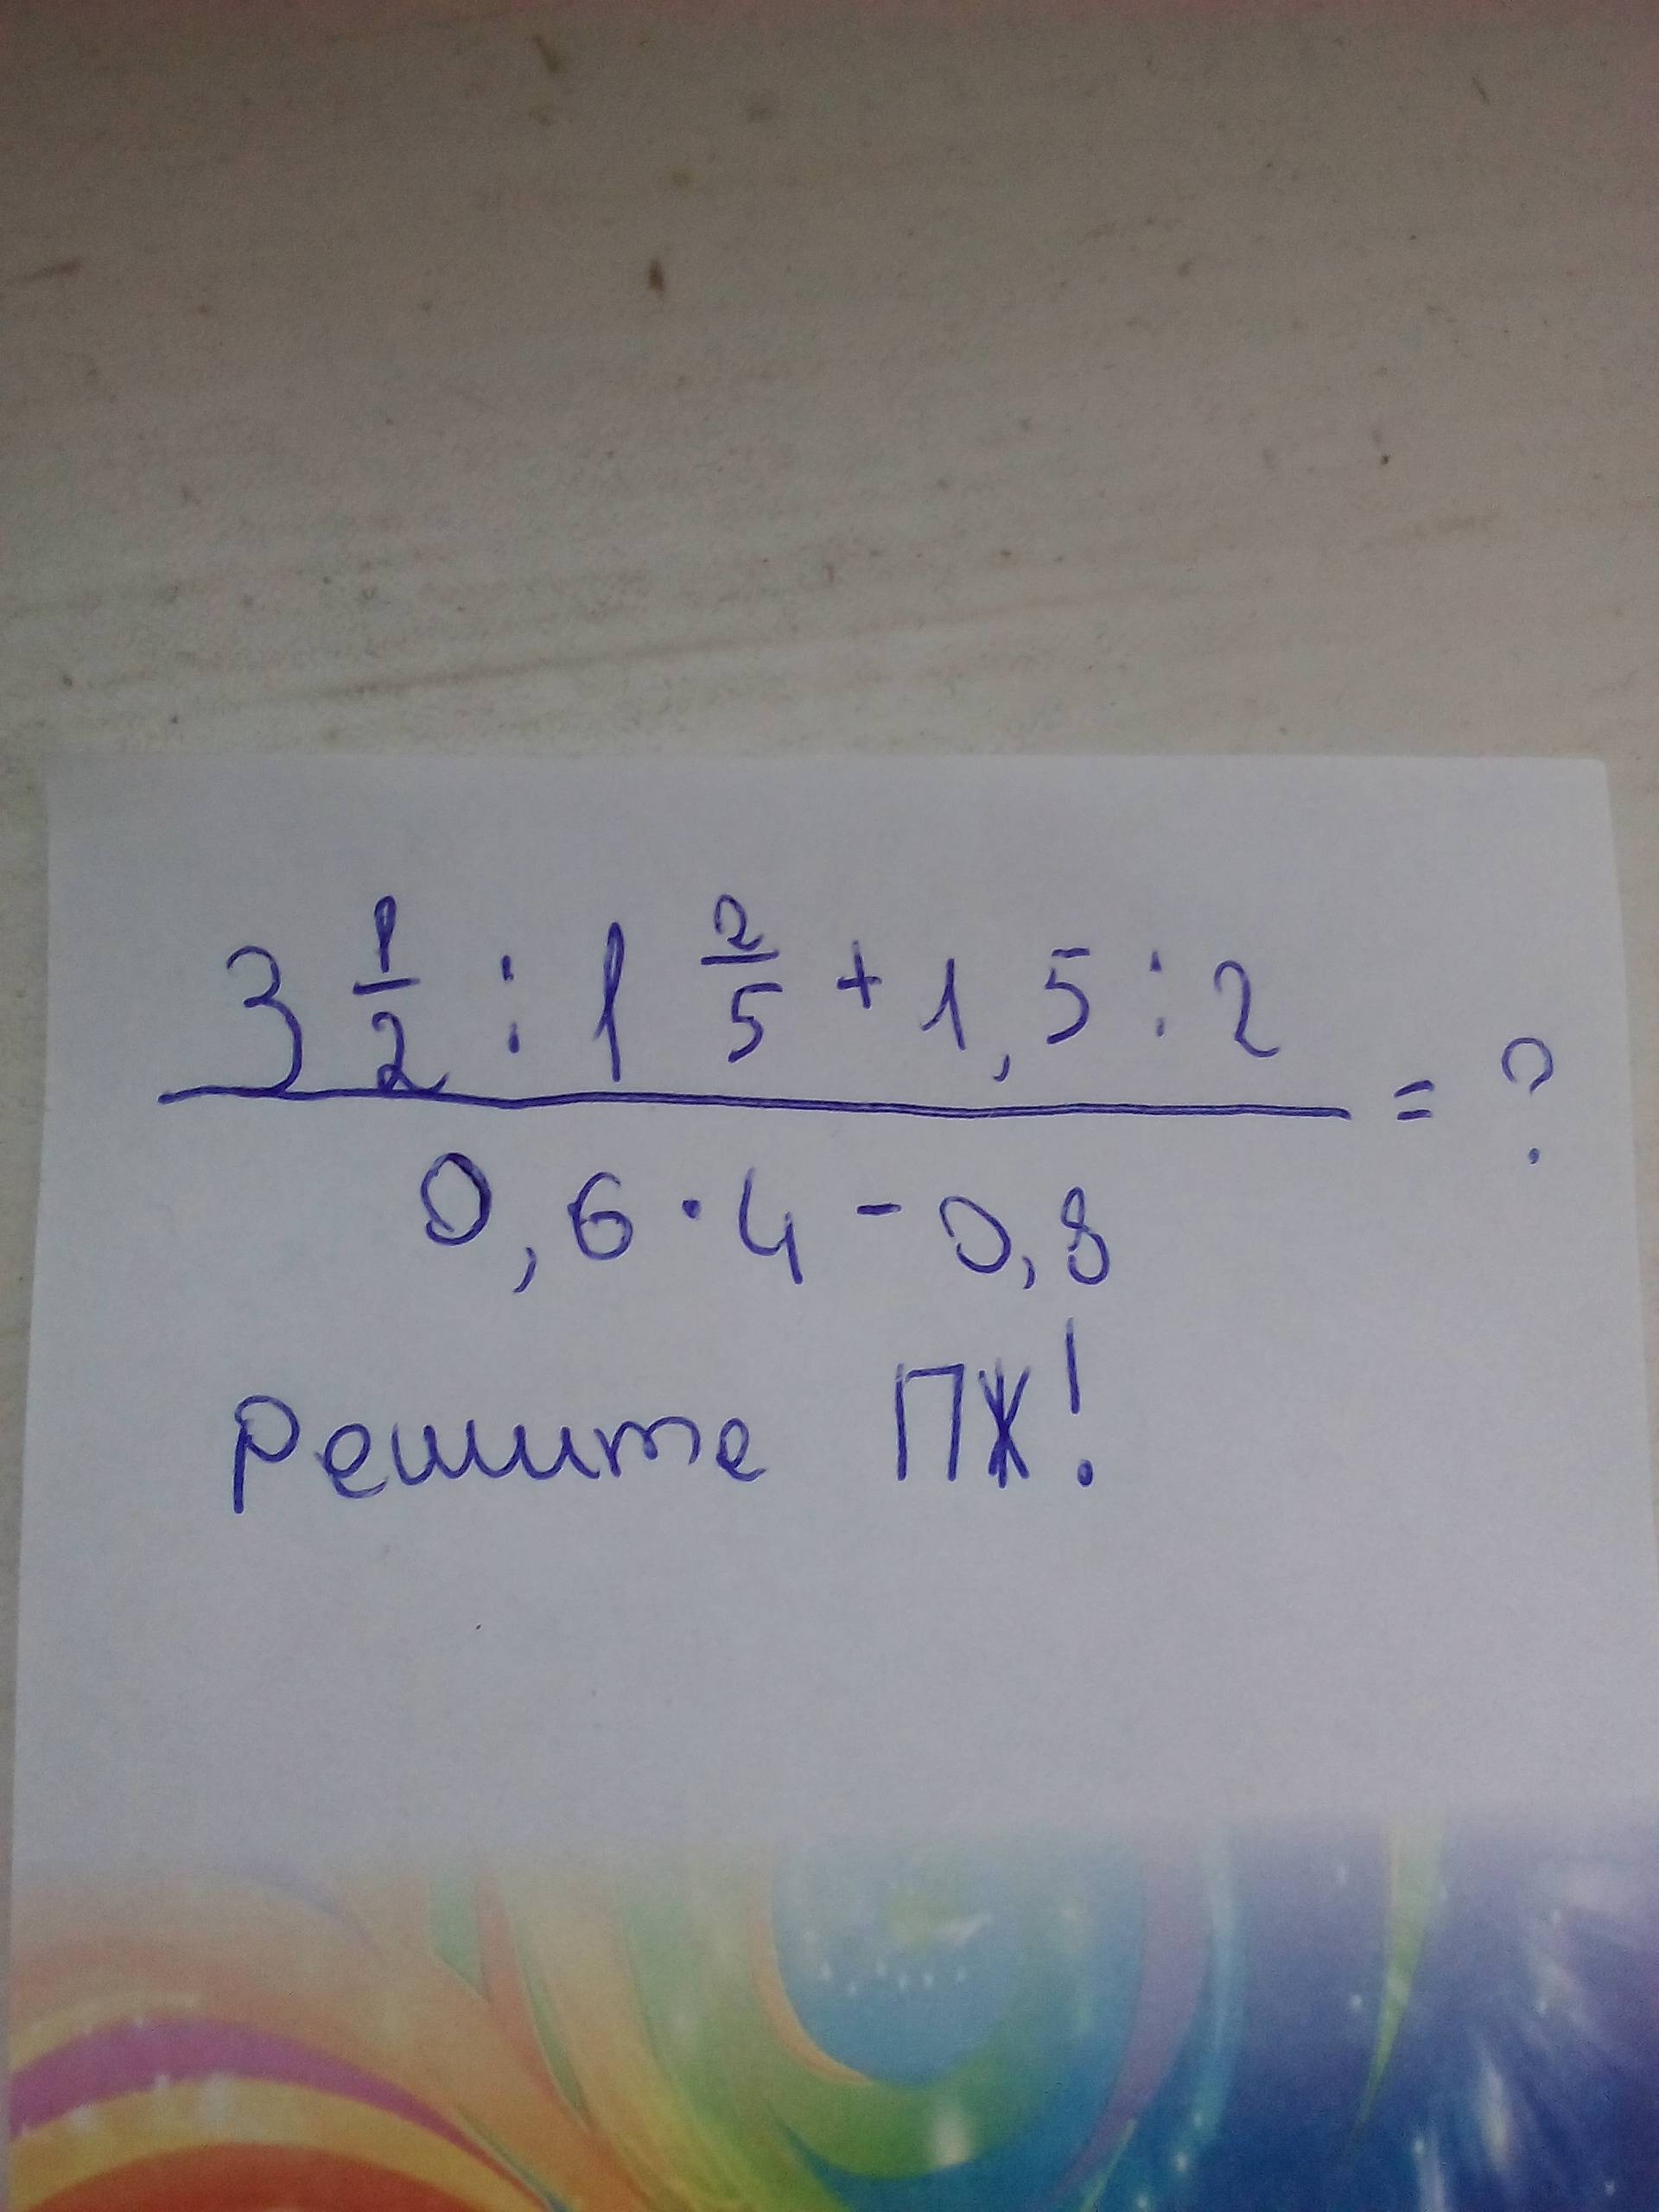 3 1/2 : 1 2/5 + 1,5 : 2 = ?
0,6 · 4 - 0,8
Решите ПЖ!